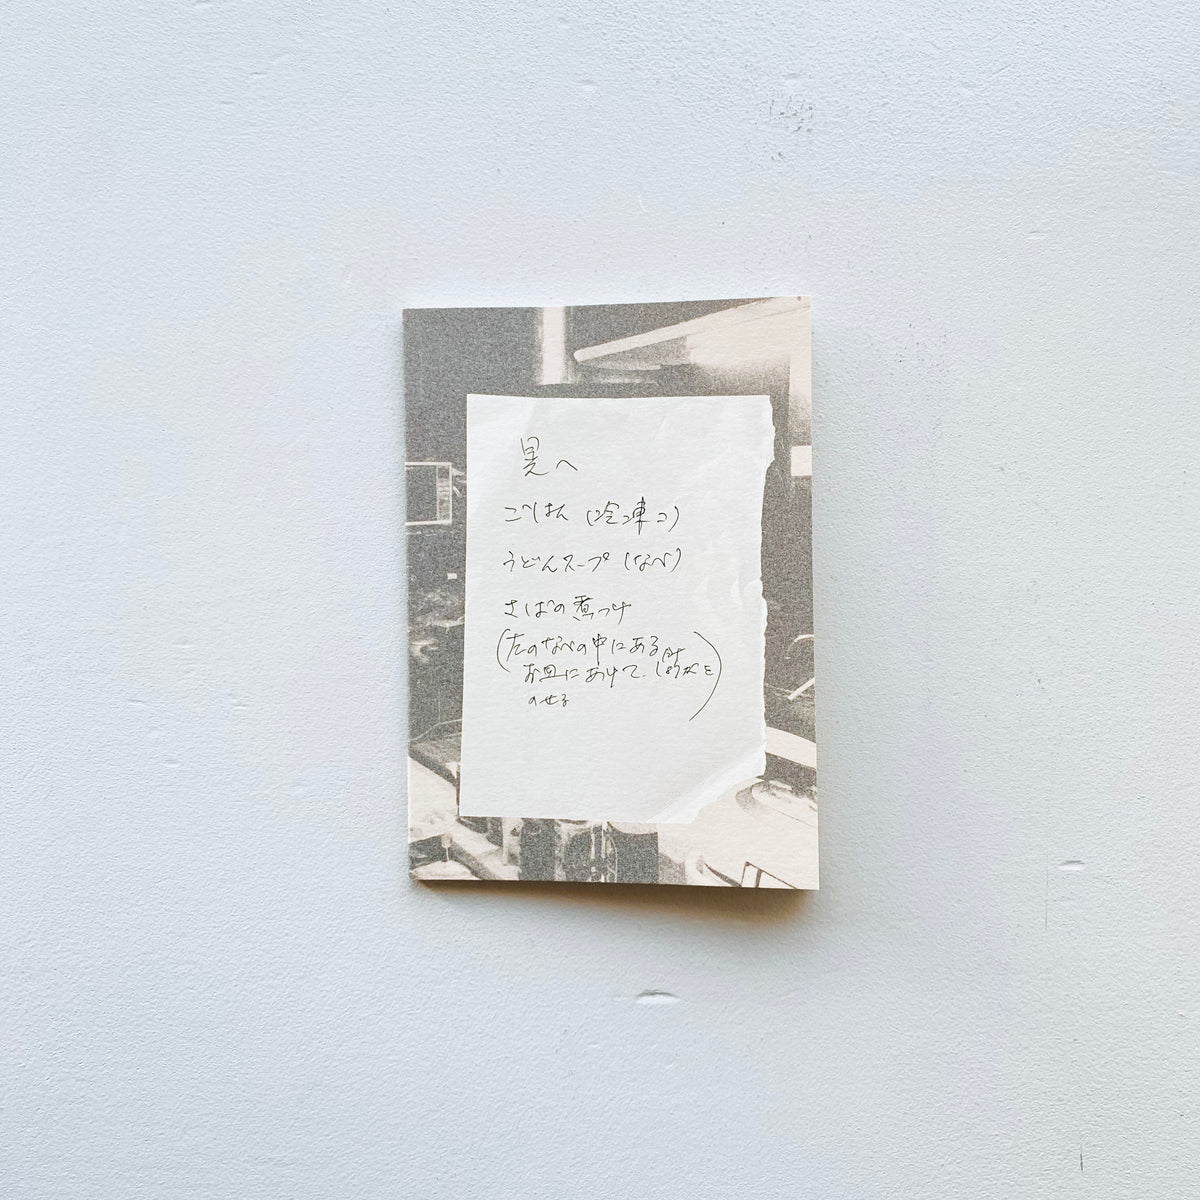 晃へ
ごはん (冷凍コ)
うどんスープ (なべ)
さばの煮つけ
(左のなべの中にある
お皿にあけて、しょうがを
のせる)